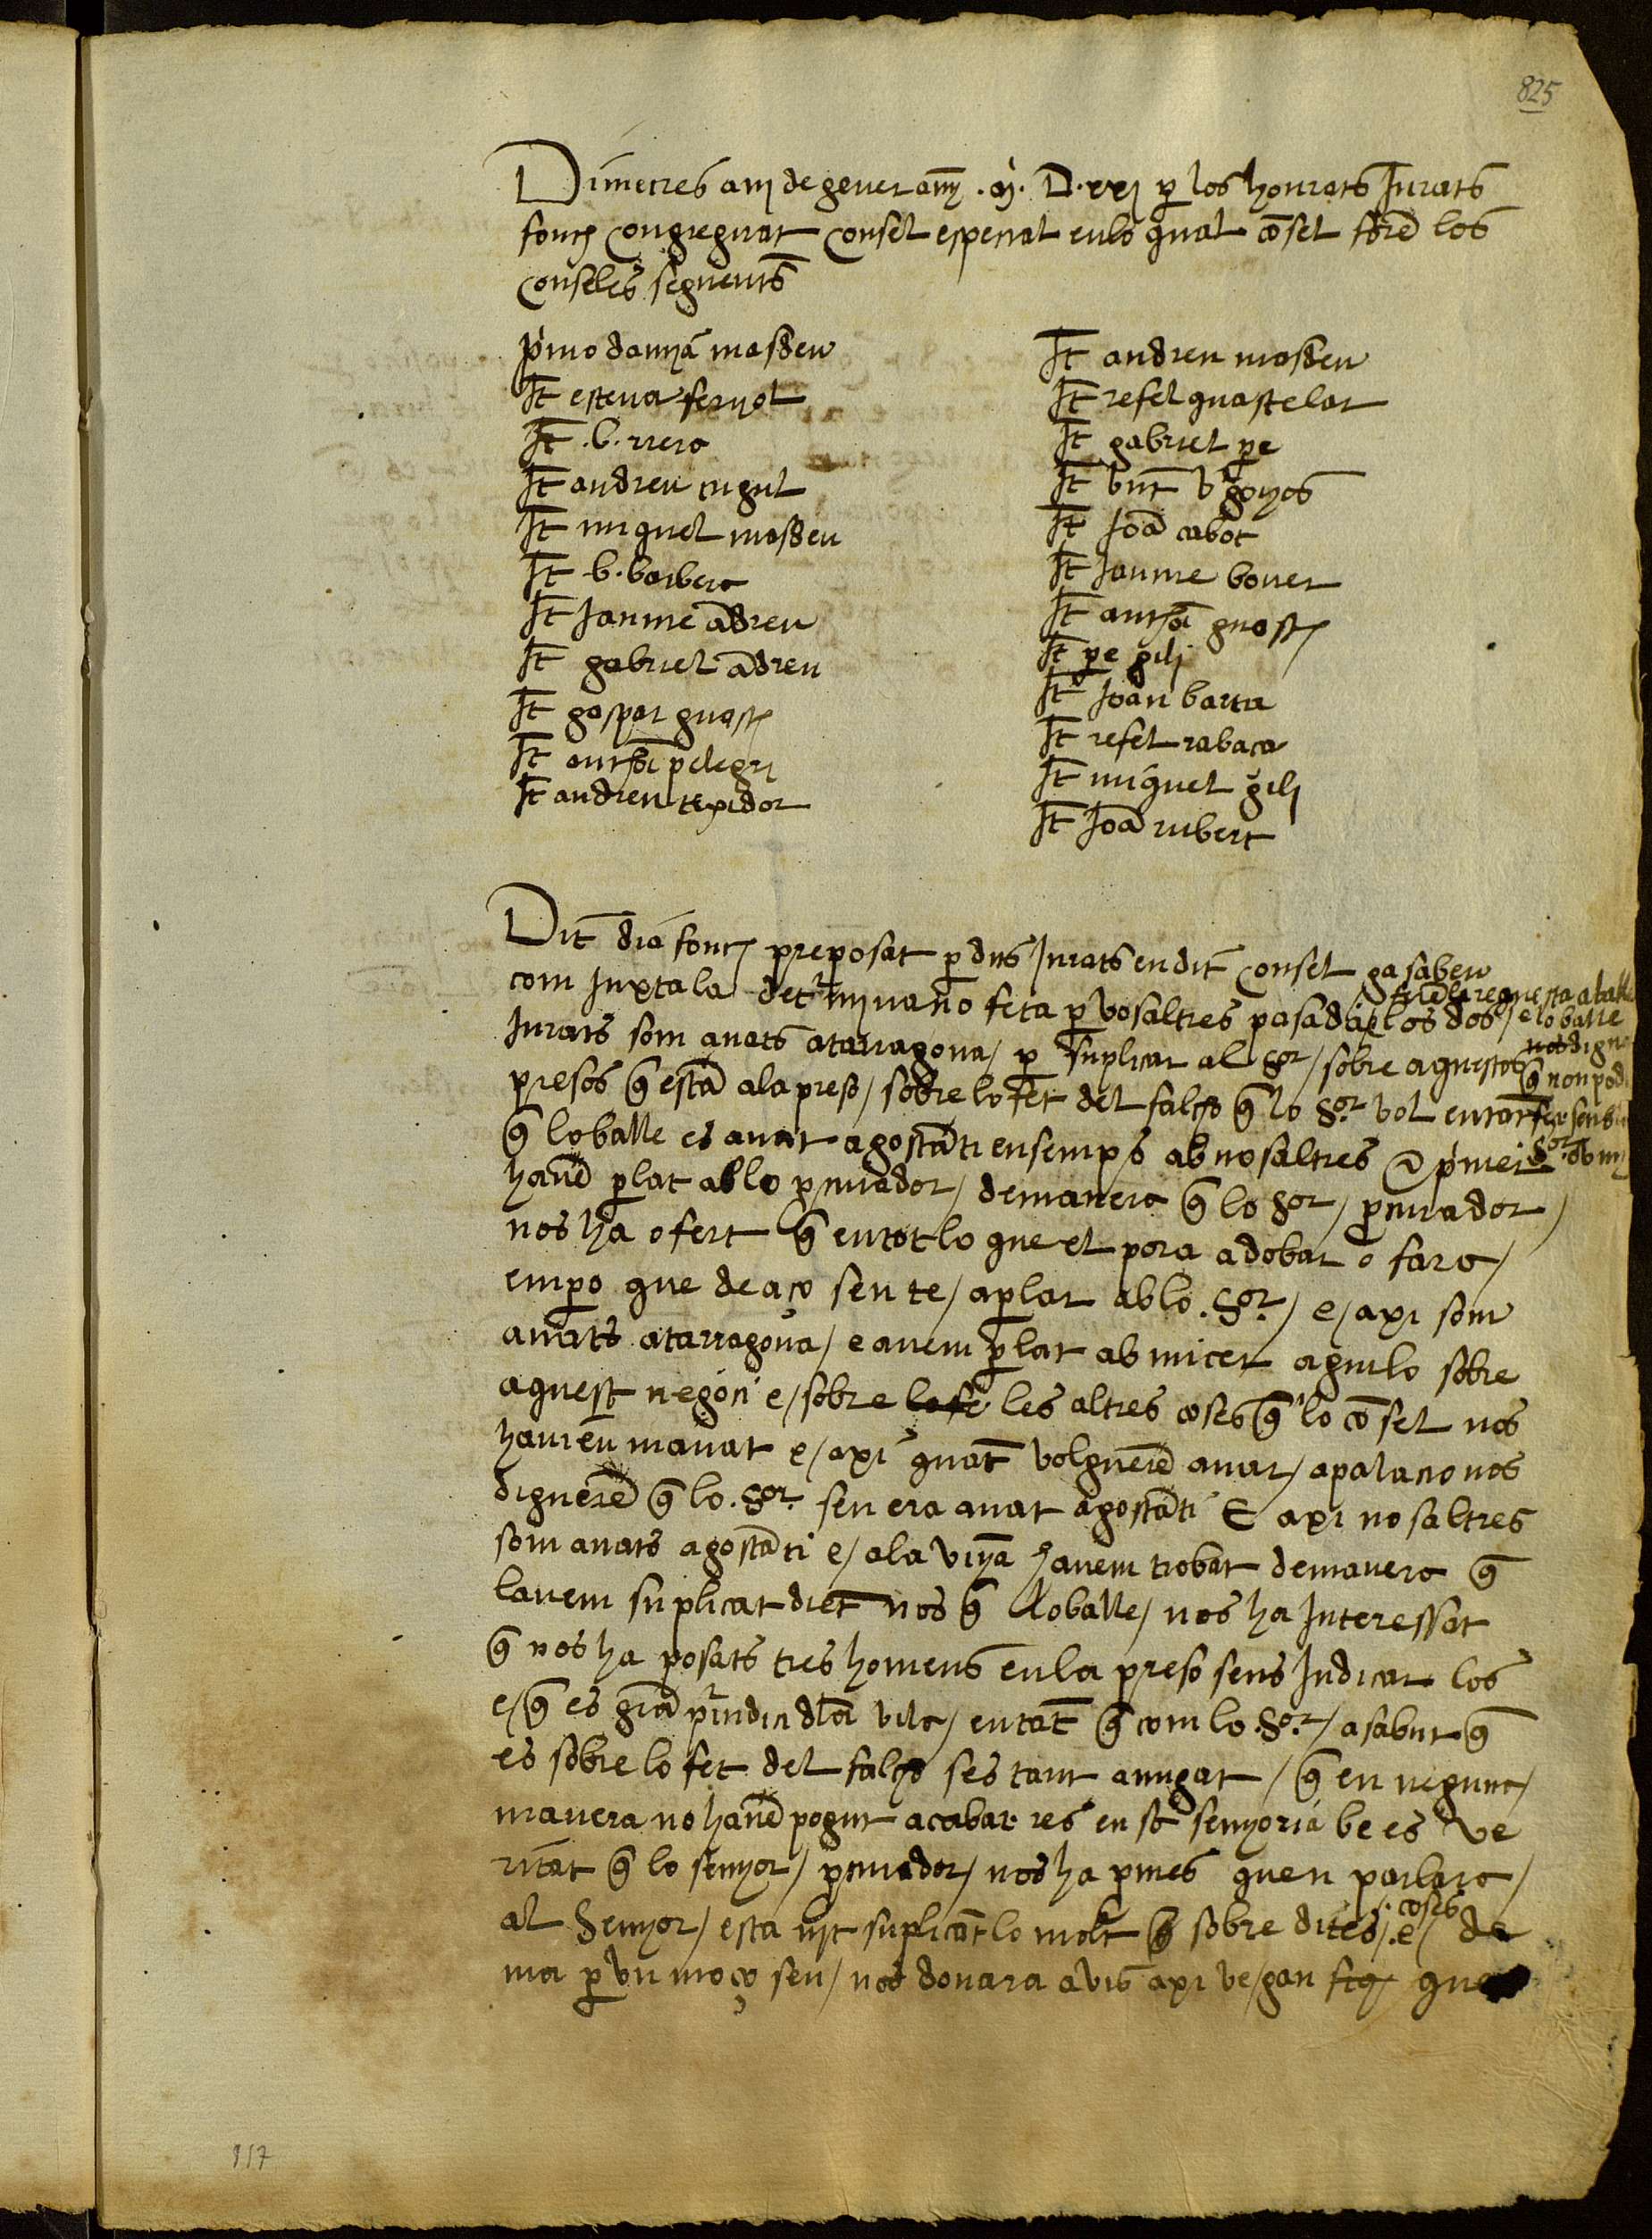 825
Dimecres a vij de gener any .M. D.xxj per los honrats Jurats
fonch congreguat consel especial en lo qual cõsel forẽ los
conselers seguents
pṁo damyã masdeu
It esteva feryol
It .b. riera
It andreu cugul
It miquel masdeu
It .b. barbera
It Jaume ãdreu
It gabriel ãdreu
It gaspar guasch
It anthõi pelegri
It andreu texidor
It andreu masdeu
It refel guastelar
It gabriel pe
It vnt vʳgonyos
It Joã cabot
It Jaume bover
It anthõi guasch
It pe gili
It Joan barta
It refel rabaça
It miquel gili
It Joã rubert
Dit dia fonch preposat p dits Jurats en dit consel ja sabeu
com Juxta la detʳmjnatio feta p vosaltres pasada los dos
fem la requesta al balle
e lo balle
Jurats som anats a tarragona / p suplicar al Sor / sobre aquestos
nos digue
q̃ non podi
presos q̃ estã ala preso / sobre lo fet del falço q̃ lo Sor vol entant
fer sens
q̃ lo balle es anat a gostãti ensemps ab nosaltres e pṁer
Sor
havẽ plat ab lo pcurador / de manera q̃ lo Sor / pcurador /
nos ha ofert q̃ en tot lo que el pora adobar o fara /
empo que de aço sen te / a plar ab lo .Sor / e / axi som
anats a tarragona / e avem plat ab micer aguilo sobre
aquest negoci e / sobre lo fe les altres coses q̃ lo cõsel nos
havien manat e / axi quãt volguerẽ anar / a palacio nos
diguerẽ q̃ lo .Sor. sen era anat a gostãti E axi nosaltres
som anats a gostãti e / ala vinya havem trobat de manera q̃
lavem suplicat diẽt nos q̃ lo balle / nos ha Interessat
q̃ nos ha posats tres homens en la preso sens Judicar los
e / q̃ es grã pʳjudici dla vila / entãt q̃ com lo .Sor. / a sabut q̃
es sobre lo fet del falço ses tant anugat / q̃ en neguna /
manera no havẽ pogut acabar res en sa senyoria be es ve
ritat q̃ lo senyor / pcurador / nos ha pmes quen parlara /
al Senyor / esta nit suplicãt lo molt q̃ sobre dites / coses e / de
ma p vn moço seu / nos donara avis axi vejan que
117